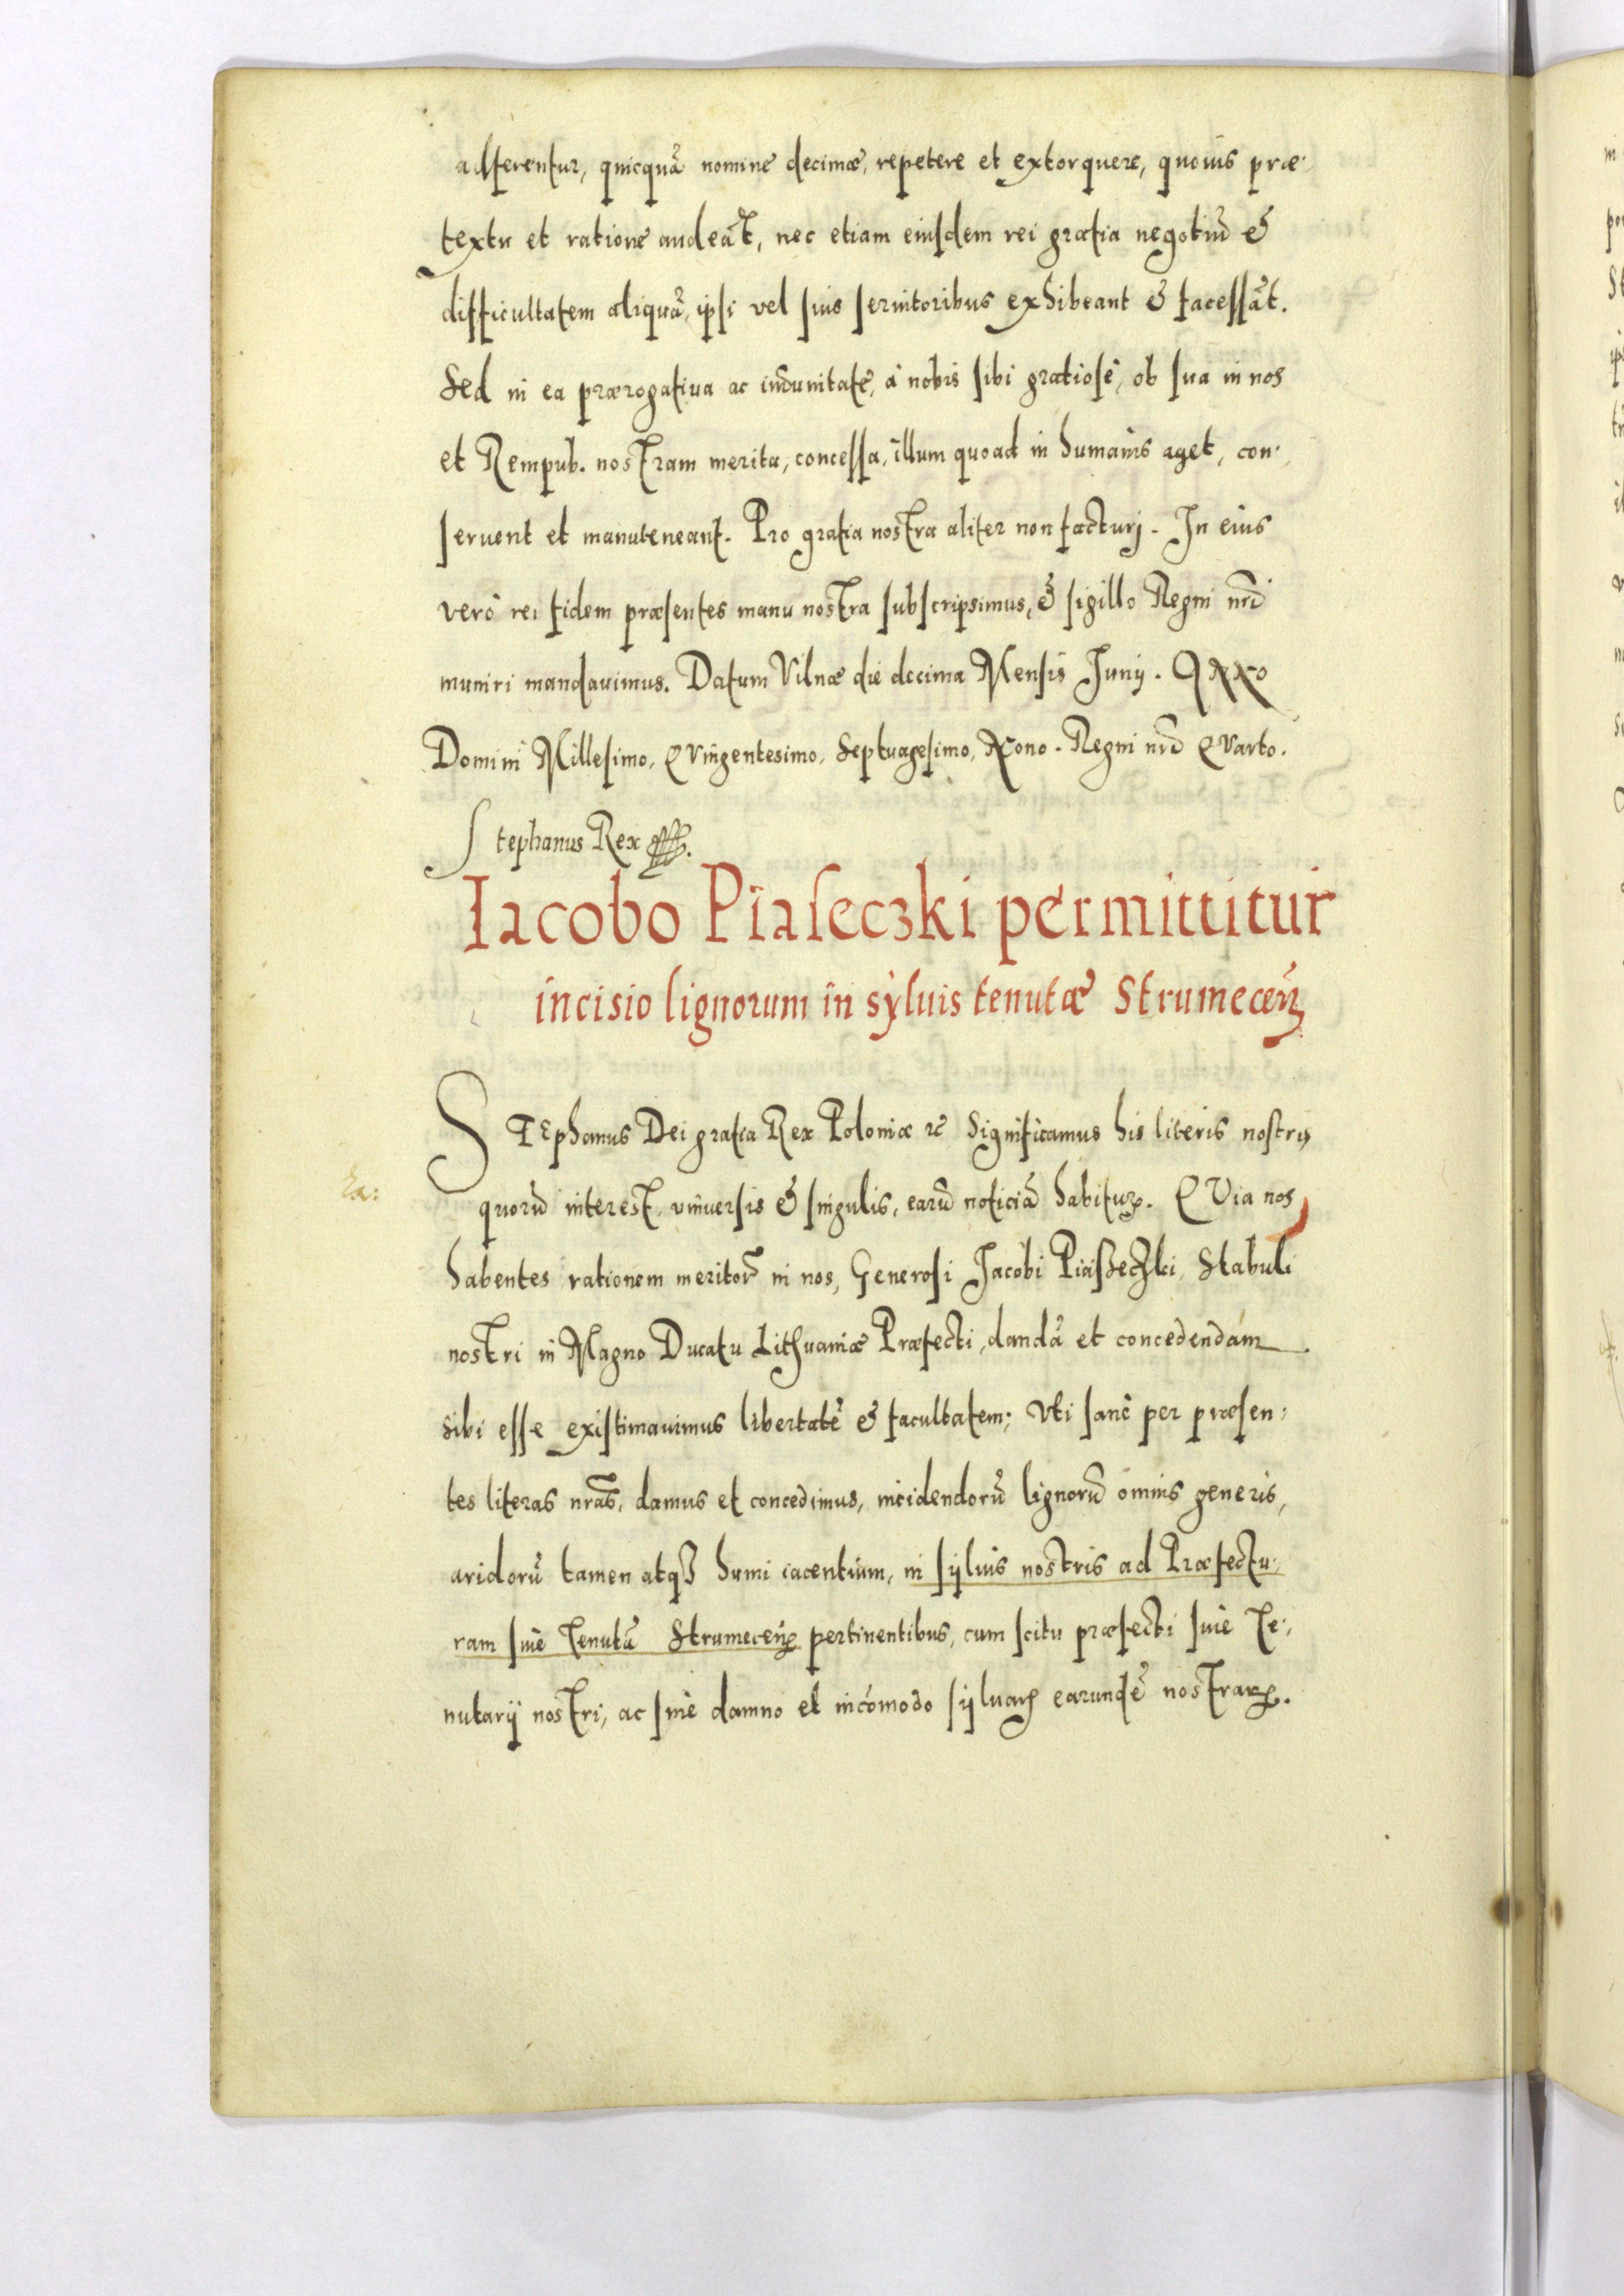 adferentur, quicquã nomine decimæ, repetere et extorquere, quouis præ-
textu et ratione audeãt, nec etiam eiusdem rei gratia negotiũ &
difficultatem aliquã, ipsi vel suis seruitoribus exhibeant & facessãt.
Sed in ea prærogatiua ac im̃unitatẽ, à nobis sibi gratiosè, ob sua in nos
et Rempub. nostram merita, concessa, illum quoad in humanis aget, con-
seruent et manuteneant. Pro gratia nostra aliter non facturj. In eius
verò rei fidem præsentes manu nostra subscripsimus, & sigillo Regni nr̃i
muniri mandauimus. Datum Vilnæ die decima Mensis Junij. ANNO
Domini Millesimo, QVingentesimo, Septuagesimo, Nono. Regni nr̃i QVarto.
Stephanus Rex
Iacobo Piaseczki permittitur
incisio lignorum in syluis tenutæ Strumecen̄
STEphanus Dei gratia Rex Poloniæ &c Significamus his literis nostris
quorũ interest, vniuersis & singulis, earũ noticiã habituꝝ. QVia nos
habentes rationem meritoꝝ in nos, Generosi Jacobi Piaseczki, Stabuli
nostri in Magno Ducatu Lithuaniæ Præfecti, dandã et concedendam
sibi esse existimauimus libertatẽ & facultatem; Vti sanè per præsen-
tes literas nr̃as, damus et concedimus, incidendorũ lignorũ omnis generis,
aridorũ tamen atqꝫ humi iacentium, in syluis nostris ad Præfectu-
ram siue Tenutã Strumecen̄ pertinentibus, cum scitu præfecti siue Te-
nutarij nostri, ac sine damno et incõmodo syluaꝝ earundẽ nostraꝝ.